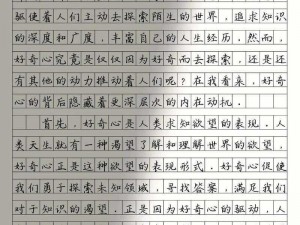 驱使着人们主动去探索陌生的世界，追求知识
的深度和广度，丰富自己的人生经历。然而，
好奇心究竟是仅仅因为好奇而去探索，还是还
有其他的动力推动着人们呢？在我看来，好奇
心的背后隐藏着更深层次的内在动机。
首先，好奇心是人类求知欲望的表现。人
类天生就有一种渴望了解和理解世界的欲望，
好奇心正是这种欲望的表现形式。好奇心促使
我们勇于探索未知领域，寻找答案，满足我们
对于知识的渴望。正是因为好奇心的驱动，人